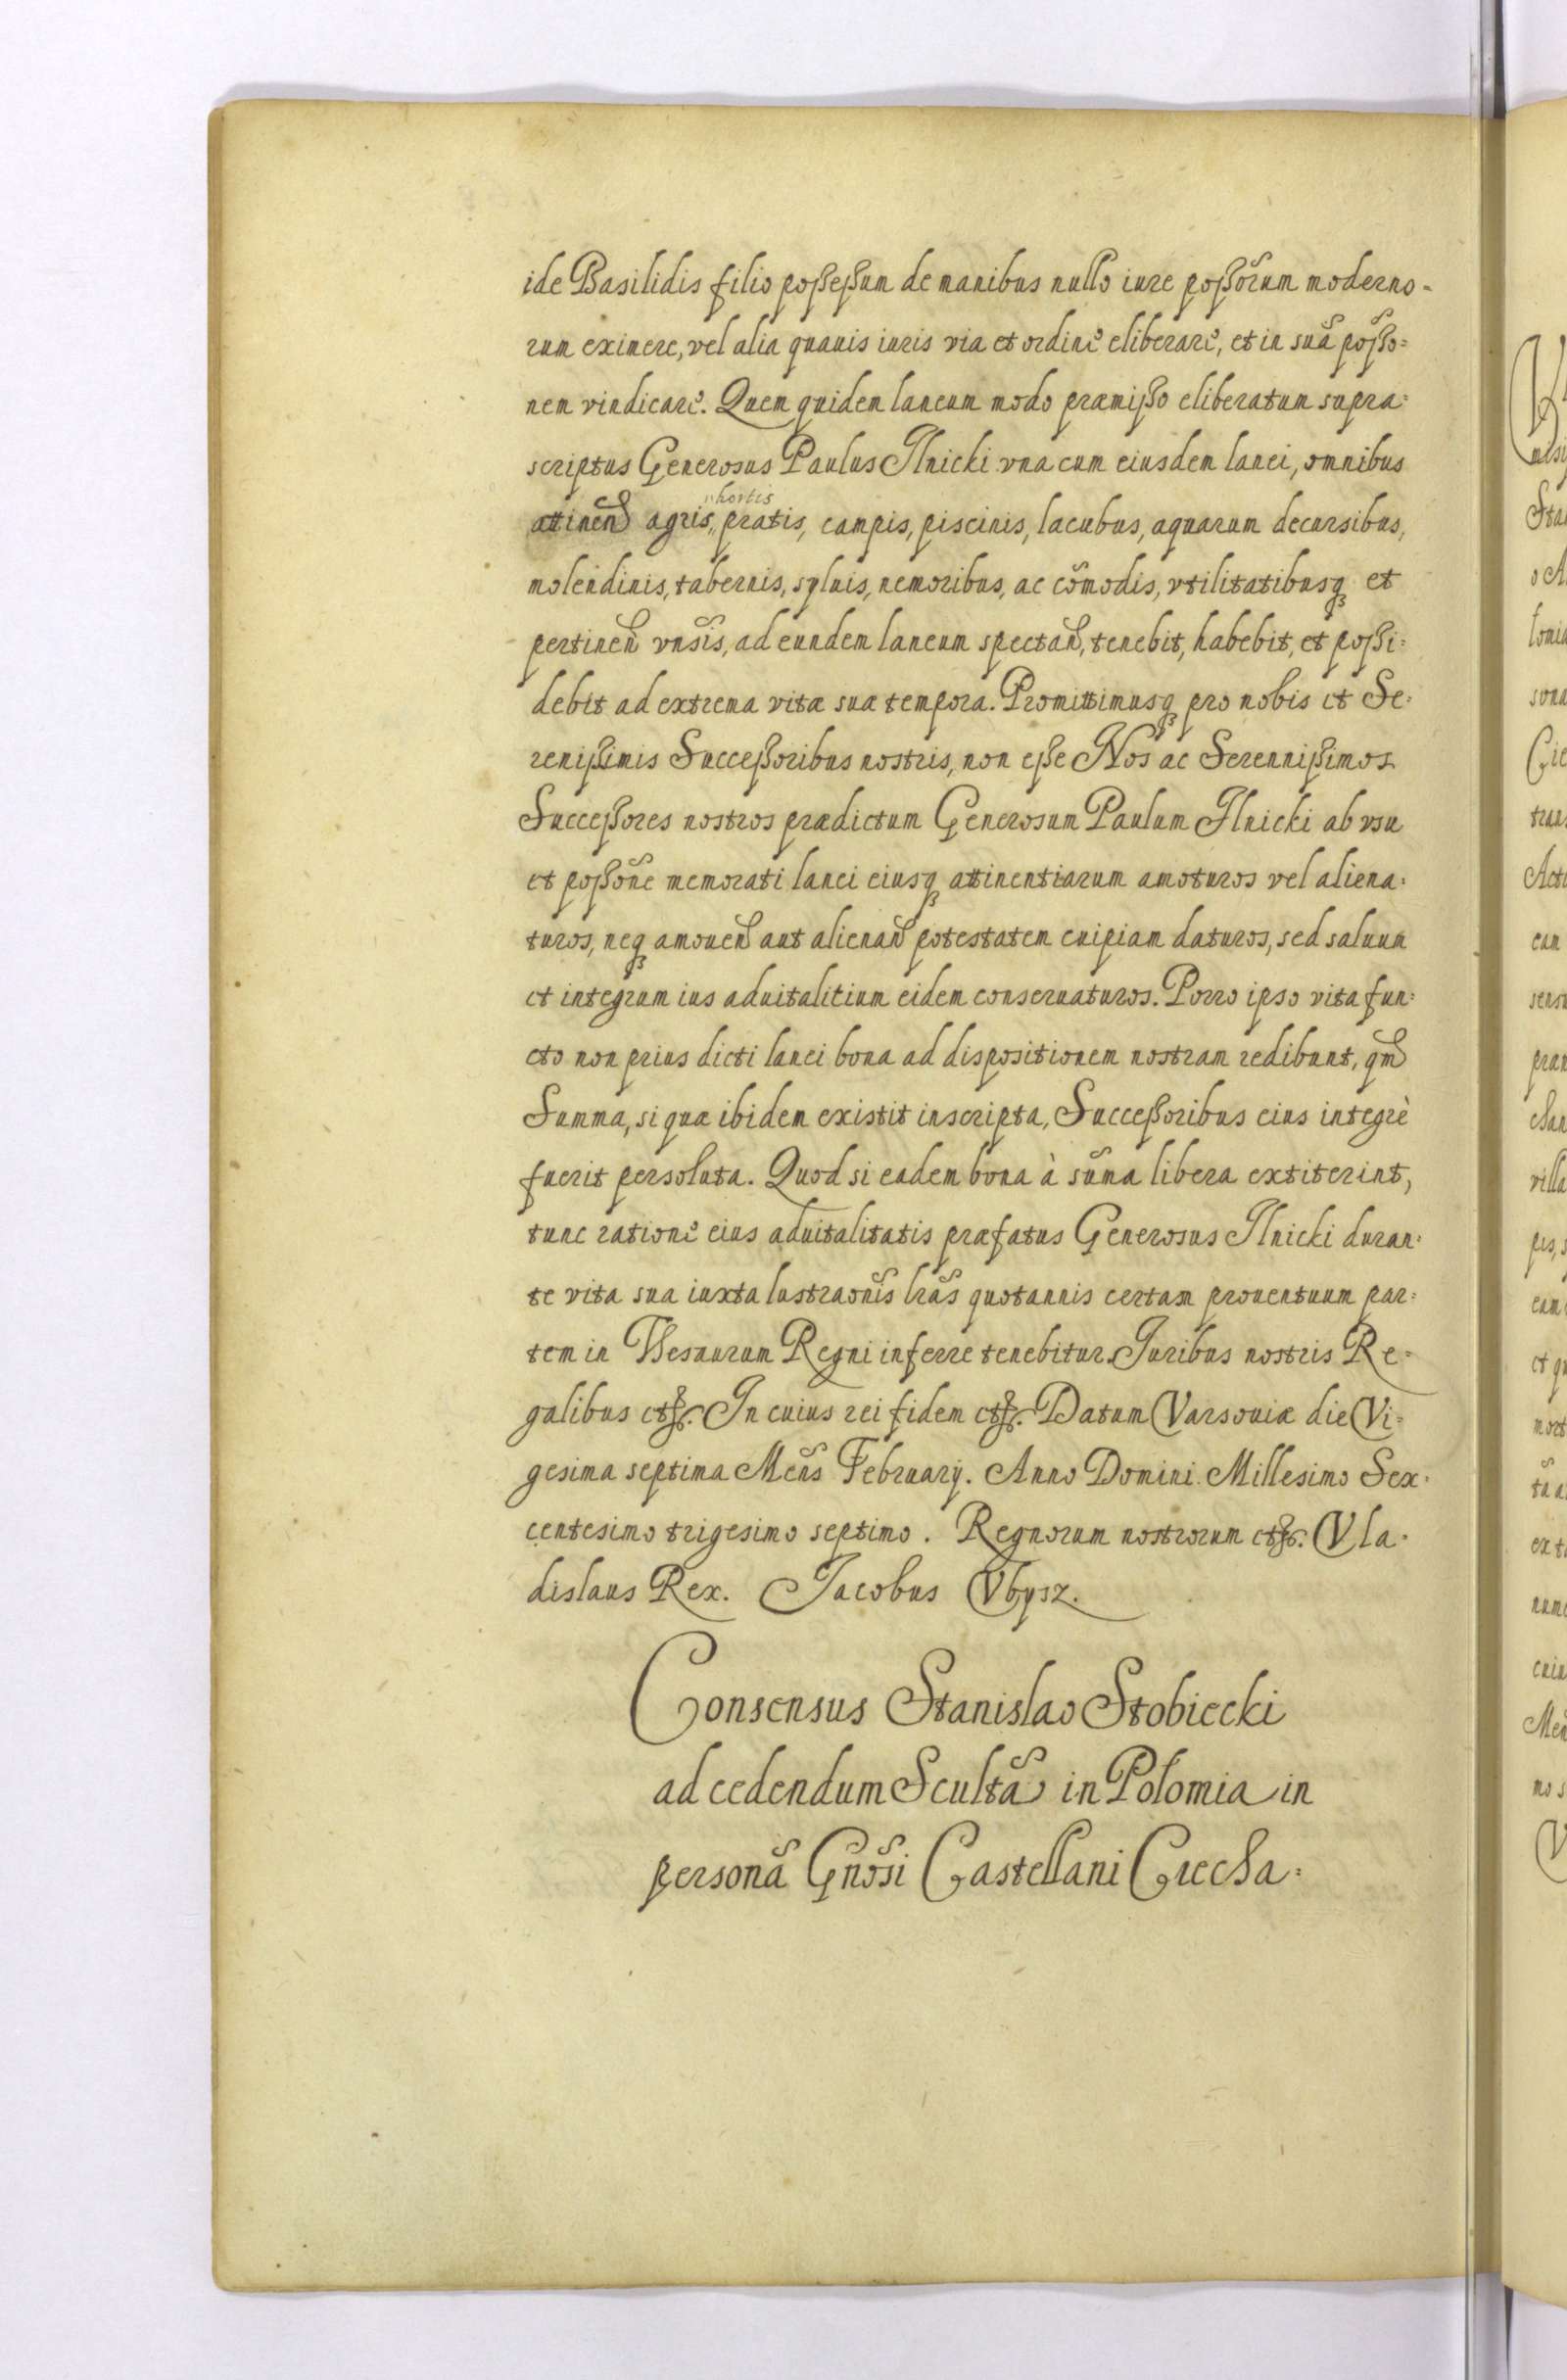 ide Basilidis filio poßeßum de manibus nullo iure poßõrum moderno-
rum eximere, vel alia quauis iuris via et ordine eliberare, et in suã poßo=
nem vindicare. Quem quidem laneum modo præmißo eliberatum supra=
scriptus Generosus Paulus Ilnicki vna cum eiusdem lanei, omnibus
hortis
attinen̄ agris,, pratis, campis, piscinis, lacubus, aquarum decursibus,
molendinis, tabernis, syluis, nemoribus, ac cõmodis, vtilitatibusq₃ et
pertinen̄ vnsĩs, ad eundem laneum spectan̄, tenebit, habebit, et poßi=
debit ad extrema vitæ suæ tempora. Promittimusq₃ pro nobis et Se=
renißimis Succeßoribus nostris, non eße Nos ac Serennißimos
Succeßores nostros prædictum Generosum Paulum Ilnicki ab vsu
et poßõne memorati lanei eiusq₃ attinentiarum amoturos vel aliena=
turos, neq₃ amouen̄ aut alienan̄ potestatem cuipiam daturos, sed saluum
et integrum ius aduitalitium eidem conseruaturos. Porro ipso vita fun=
cto non prius dicti lanei bona ad dispositionem nostram redibunt, qm̃
Summa, si quæ ibidem existit inscripta, Succeßoribus eius integrè
fuerit persoluta. Quod si eadem bona à sũma libera extiterint,
tunc ratione eius aduitalitatis præfatus Generosus Ilnicki duran=
te vita sua iuxta lustraõnis lrãs quotannis certam prouentuum par=
tem in Thesaurum Regni inferre tenebitur. Iuribus nostris Re=
galibus etc. In cuius rei fidem etc. Datum Varsouiæ die Vi=
gesima septima Meñs February. Anno Domini Millesimo Sex=
centesimo trigesimo septimo. Regnorum nostrorum etc. Vla=
dislaus Rex. Jacobus Vbysz.
Consensus Stanislao Stobiecki
ad cedendum Scultã in Polomia in
personã Gnõsi Castellani Ciecha=